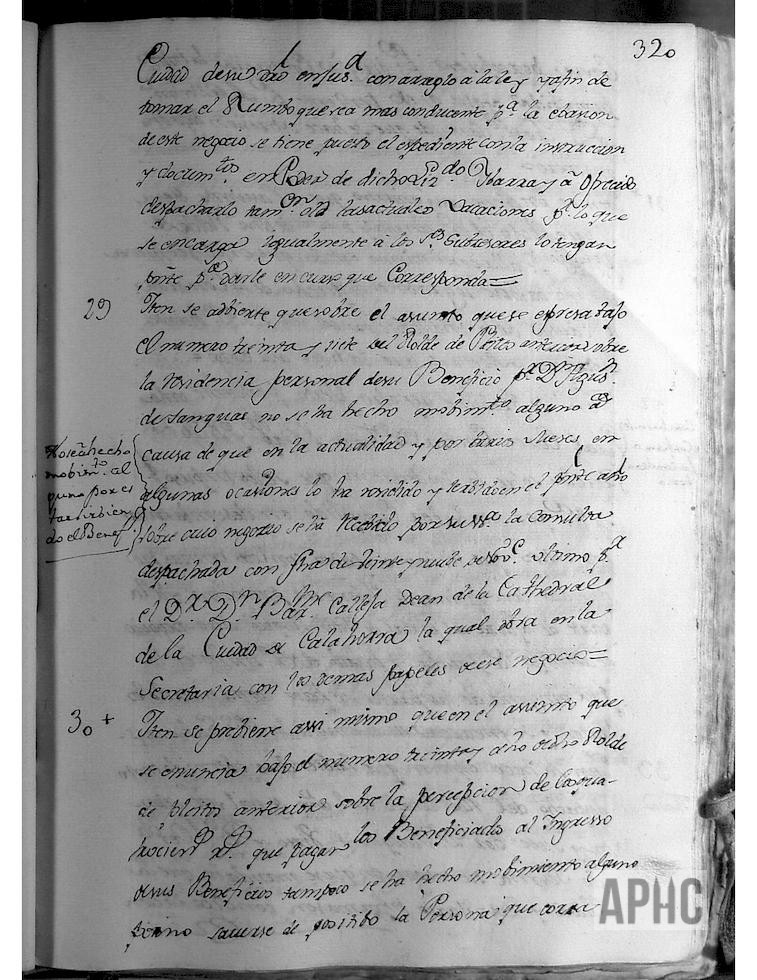 320
Ciudad de su dro en sus.ª con arreglo a la ley y a fin de
tomar el Rumbo que sea mas conducente p.ª la ebasion
de este negocio se tiene puesto el espediente con la instruccion
y docum.tos en Poder de dicho Liz.do Ybarra y a
despacharlo las actuales Vacaciones p.r lo que
se encarga igualmente à los S.res Subcesores lo tengan
p̃nte p.ª darle en curso que Corresponda=
29 Iten se adbierte que sobre el asumto que se espresa bajo
el numero treinta y siete del Rolde de Pleitos anterior sobre
la residencia personal de su Beneficio p.r D.n Agus.n
de Sanguas no se ha hecho mobim.to alguno a
causa de que en la actualidad y por barios Meses en
No se a hecho
mobim.to al
guno por es
tar sirbien
do el Benef.
algunas ocasiones lo ha residido y en el p̃nte año
sobre cuio negocio se ha Recibido por su s.ª la Consulta
despachada con fha de beinte y nuebe de ultimo p.r
el D.r D.n Bar.me Calleja Dean de la Cathedral
de la Ciudad de Calahorra la qual obra en la
Secretaria con los demas papeles de ese negocio=
30 + Iten se prebiene assi mismo que en el asumto que
se enuncia bajo el numero treinta y ocho de dho Rolde
de Pleitos anterior sobre la percepcion de los qua-
trocien.s r.s que pagan los Beneficiados al Ingresso
de sus Beneficios tampoco se ha hecho mobimiento alguno
por no sauerse de positibo la Persona que corra
APHC